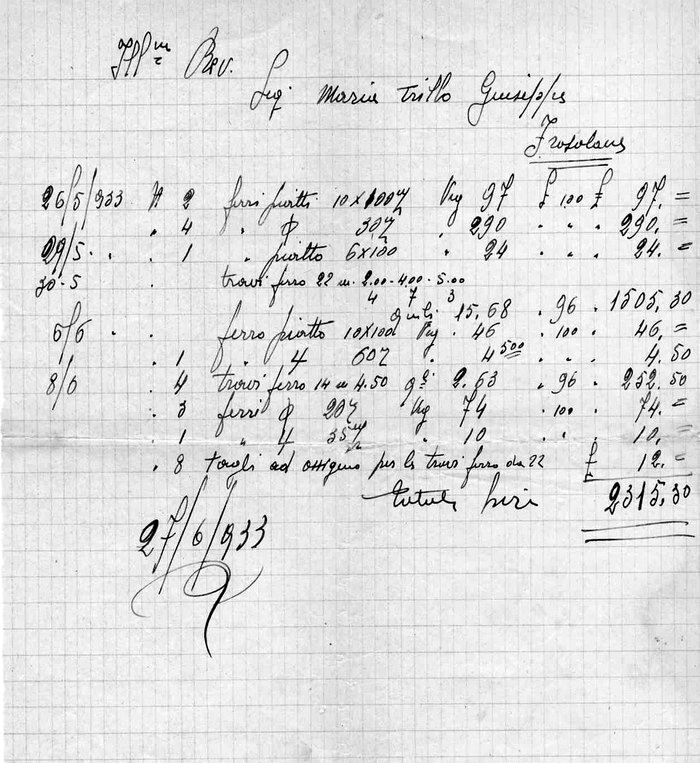 Ill.mo Rev.
Sig. Maria Trillo Giuseppe
Frosolone
26/5/933 N 2 ferri piatti 10x100 Kg 97 £ 100 £ 97.=
" 4 " ϕ 30 " 290 " " " 290.=
29/5 " " 1 " piatto 6x100 " 24 " " " 24.=
30-5 travi ferro 22 m. 2.00-4.00-5.00
4 7 3
Quili 15,68 " 96 " 1505,30
6/6 " " ferro piatto 10x100 Kg " 46 " 100 " 46,=
" 1 " 4 60 " 4 500 " " " 4.50
8/6 " 4 travi ferro 14 m 4.50 q.li 2.63 " 96 " 252.50
" 3 ferri ϕ 20 Kg 74 " 100 " 74.=
1 " 4 35 " 10 " " 10,=
" 8 tagli ad ossigeno per le travi ferro da 22 £ 12.=
Totale Lire 2315,30
27/6/933